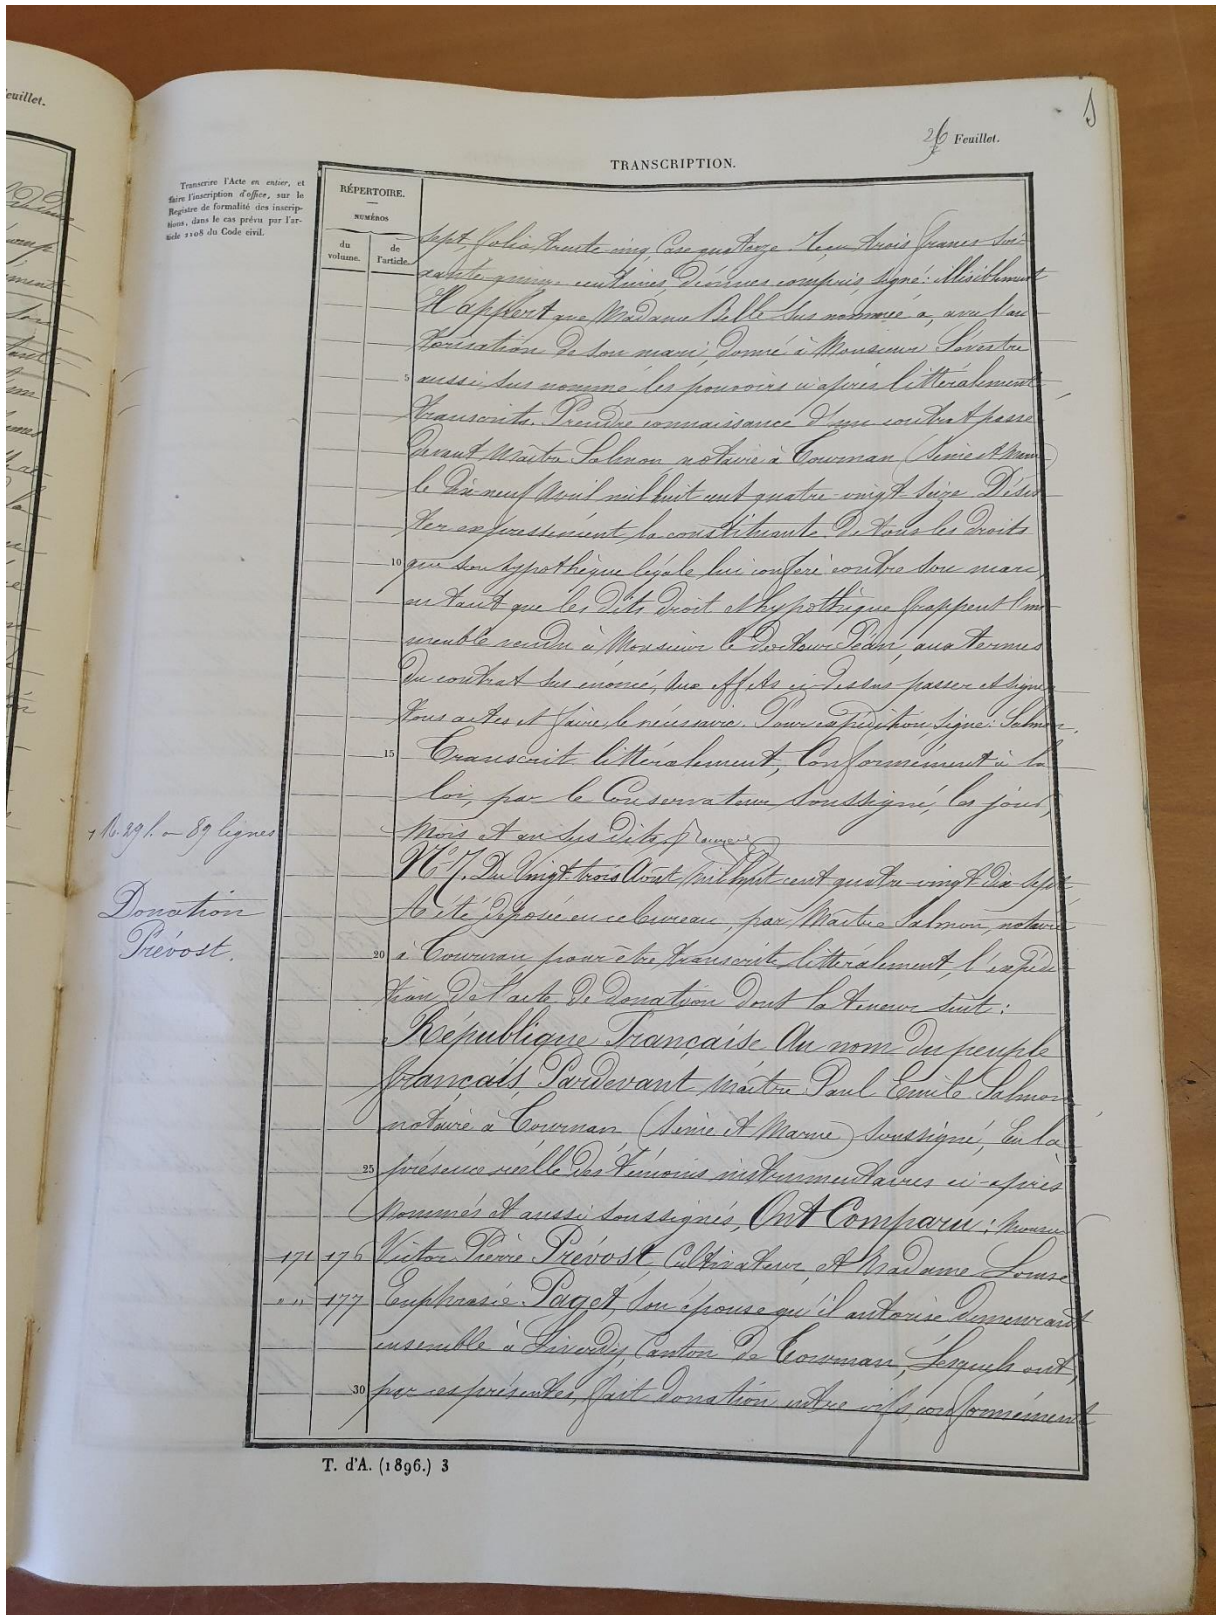 Feuillet.
26 Feuillet.
TRANSCRIPTION.
Transcrire l'Acte en entier, et
faire l'inscription d'office, sur le
Registre de formalité des inscrip-
tions, dans le cas prévu par l'ar-
ticle 2108 du Code civil.
RÉPERTOIRE.
NUMÉROS
du
volume.
de
l'article.
sept, folio trente cinq, Case quatorze. Reçu trois francs soi-
xante quinze centimes, décimes compris, signé: illisiblement
Il appert que Madame Belle sus nommée a, avec l'au-
torisation de son mari, donné à Monsieur Sévestre
5 aussi sus nommé les pouvoirs ci après littéralement
transcrits. Prendre connaissance d'un contrat passé
devant Maître Salmon, notaire à Tournan (Seine et Marne)
le dix neuf avril mil huit cent quatre-vingt-seize. Désis-
ter expressément la constituante de tous les droits
10 que son hypothèque légale lui confère contre son mari,
en tant que les dits droit et hypothèque frappent l'im-
meuble vendu à Monsieur le Docteur Péan, aux termes
du contrat sus énoncé, Aux effets ci-dessus passer et signer
tous actes et faire le nécessaire. Pour expédition, signé: Salmon.
15 Transcrit littéralement, Conformément à la
loi, par le Conservateur Soussigné, les jour,
mois et an sus dits.
1 R. 29 f. - 89 lignes
N° 7. Du Vingt-trois Août mil huit cent quatre-vingt-dix-sept
Donation
Prévost.
A été déposée en ce bureau, par Maître Salmon, notaire
20 à Tournan pour être transcrite littéralement, l'expédi-
tion de l'acte de donation dont la teneur suit:
République Française Au nom du peuple
français, Pardevant Maître Paul Emile Salmon
notaire à Tournan (Seine et Marne) soussigné, En la
25 présence réelle des témoins instrumentaires ci-après
nommés et aussi soussignés, Ont Comparu: Monsieur
171 176 Victor Pierre Prévost, Cultivateur, et Madame Louise
" " 177 Euphrasie Paget, son épouse qu'il autorise demeurant
ensemble à Liverdy, Canton de Tournan, Lesquels ont,
30 par ces présentes, fait donation entre vifs, conformément
T. d'A. (1896.) 3